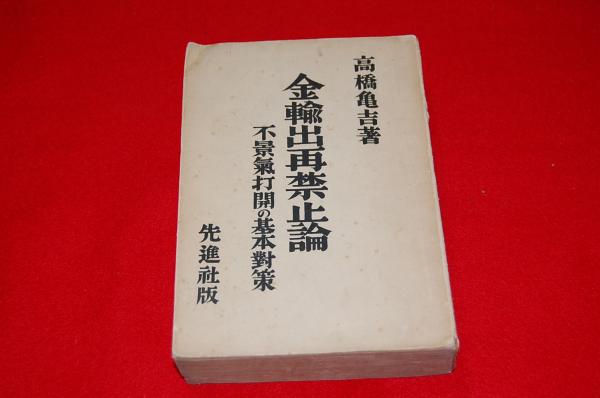 高橋亀吉著
金輸出再禁止論
不景氣打開の基本對策
先進社版